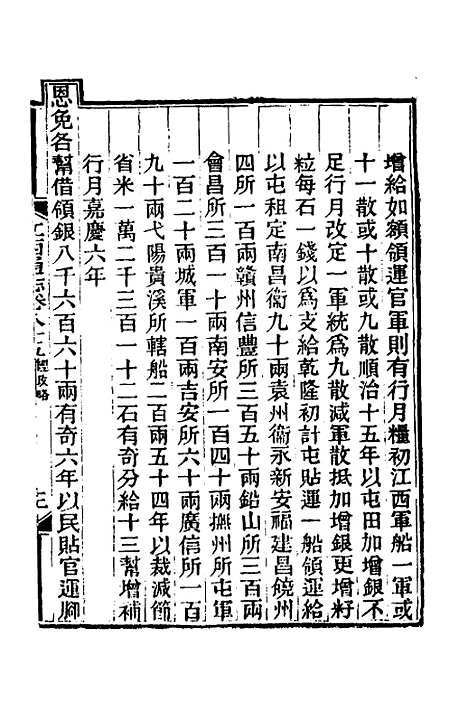 增給如額領運官軍則有行月糧初江西軍船一軍或
十一散或十散或九散順治十五年以屯田加增銀不
足行月改定一軍統爲九散減軍散抵加增銀更增籽
粒每石一錢以爲支給乾隆初計屯貼運一船領運給
以屯租定南昌衞九十兩袁州衞永新安福建昌饒州
四所一百兩贛州信豐所三百五十兩鉛山所三百兩
會昌所三百一十兩南安所一百四十兩撫州所屯軍
一百二十兩城軍一百兩吉安所六十兩廣信所一百
九十兩弋陽貴溪所轄船二百兩五十四年以裁減節
省米一萬二千三百一十二石有奇分給十三幫增補
行月嘉慶六年
恩免各幫借領銀八千六百六十兩有奇六年以民貼官運腳
江西通志卷八十五 經政略